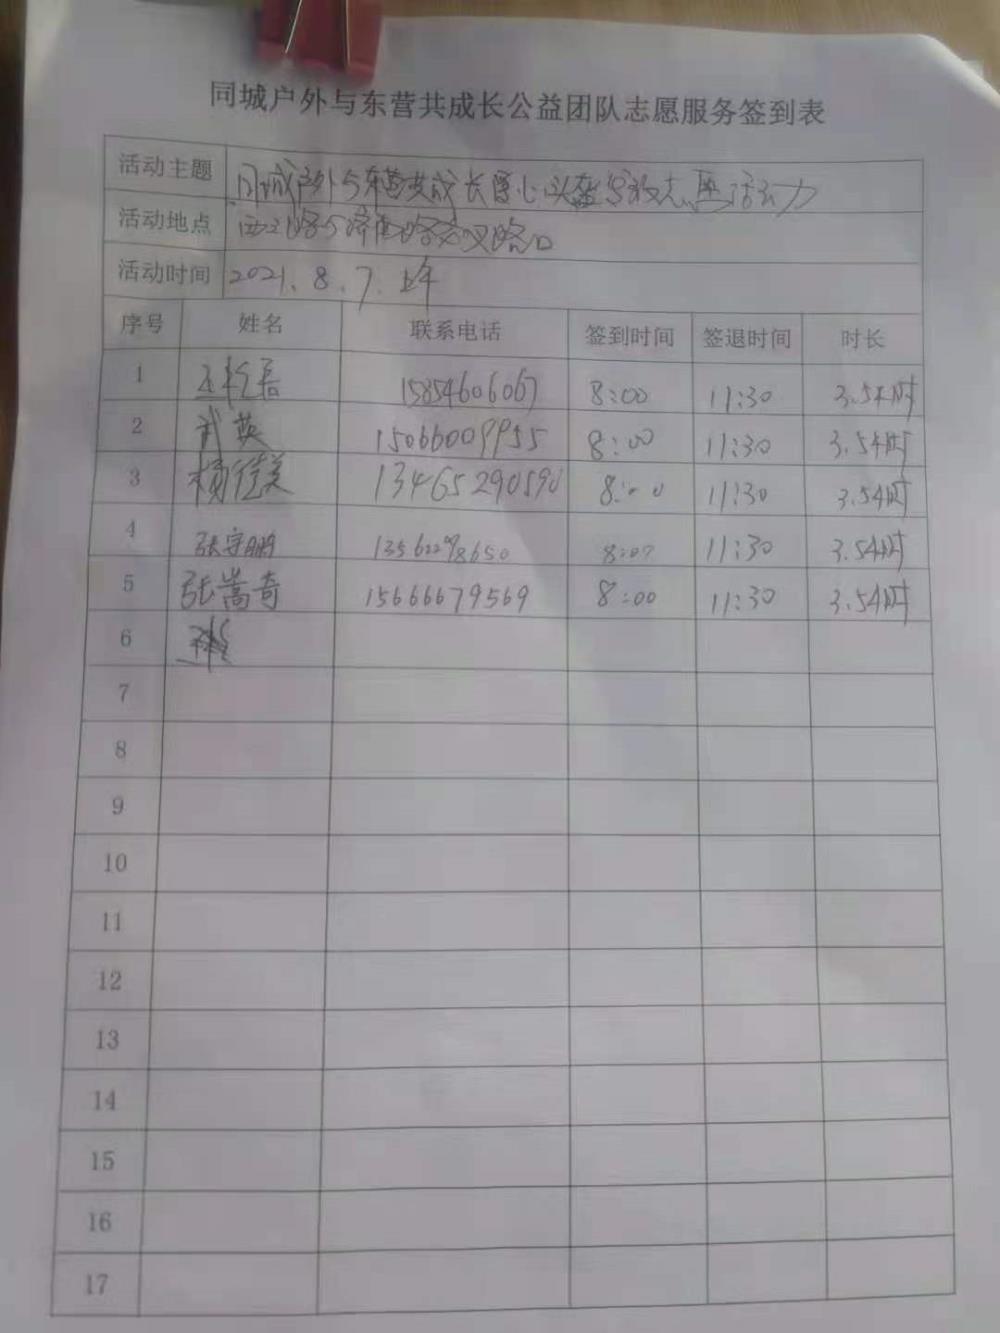 同城户外与东营共成长公益团队志愿服务签到表
活动主题 同城户外与东营共成长 志愿活动
活动地点 西二路与济南路交叉路口
活动时间 2021.8.7.上午
序号 姓名 联系电话 签到时间 签退时间 时长
1 15854606067 8:00 11:30 3.5小时
2 武英 15066009955 8:00 11:30 3.5小时
3 杨佳美 13465290590 8:00 11:30 3.5小时
4 张守鹏 13562298650 8:07 11:30 3.5小时
5 张嵩奇 15666679569 8:00 11:30 3.5小时
6
7
8
9
10
11
12
13
14
15
16
17